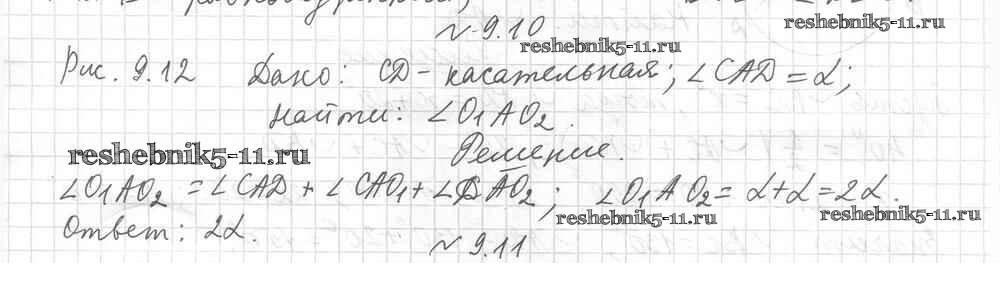 № 9.10
reshebnik5-11.ru
reshebnik5-11.ru
Рис. 9.12 Дано: CD - касательная; ∠CAD = α;
Найти: ∠O₁AO₂.
reshebnik5-11.ru Решение.
∠O₁AO₂ = ∠CAD + ∠CAO₁ + ∠DAO₂; ∠O₁AO₂ = α + α = 2α.
reshebnik5-11.ru
reshebnik5-11.ru
Ответ: 2α.
№ 9.11